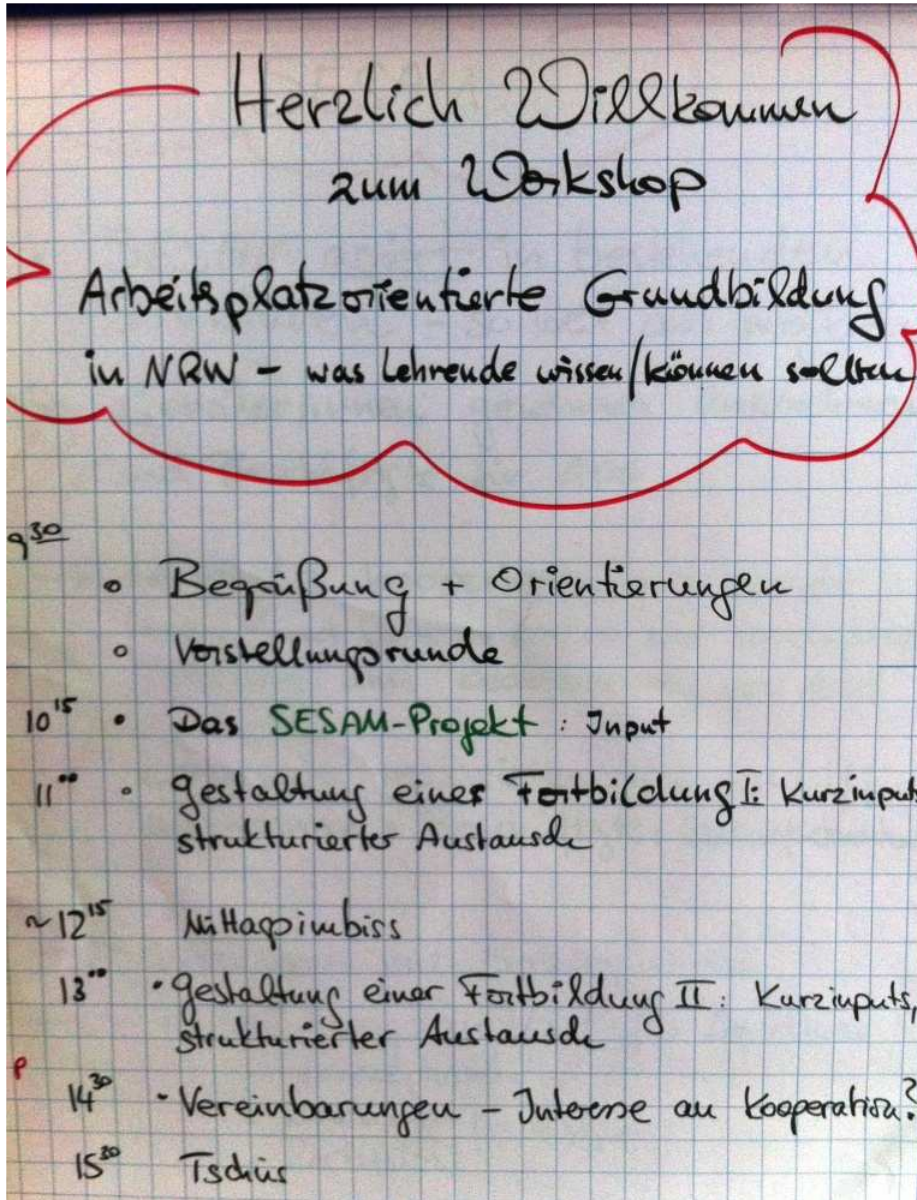 Herzlich Willkommen
zum Workshop
Arbeitsplatzorientierte Grundbildung
in NRW - was Lehrende wissen/können sollten
9 30
Begrüßung + Orientierungen
Vorstellungsrunde
10 15 • Das SESAM-Projekt : Input
11 00 • Gestaltung einer Fortbildung I: Kurzinputs
strukturierter Austausch
~12 15 Mittagsimbiss
13 00 • Gestaltung einer Fortbildung II: Kurzinputs,
strukturierter Austausch
P
14 30 • Vereinbarungen - Interesse an Kooperation?
15 30 Tschüs